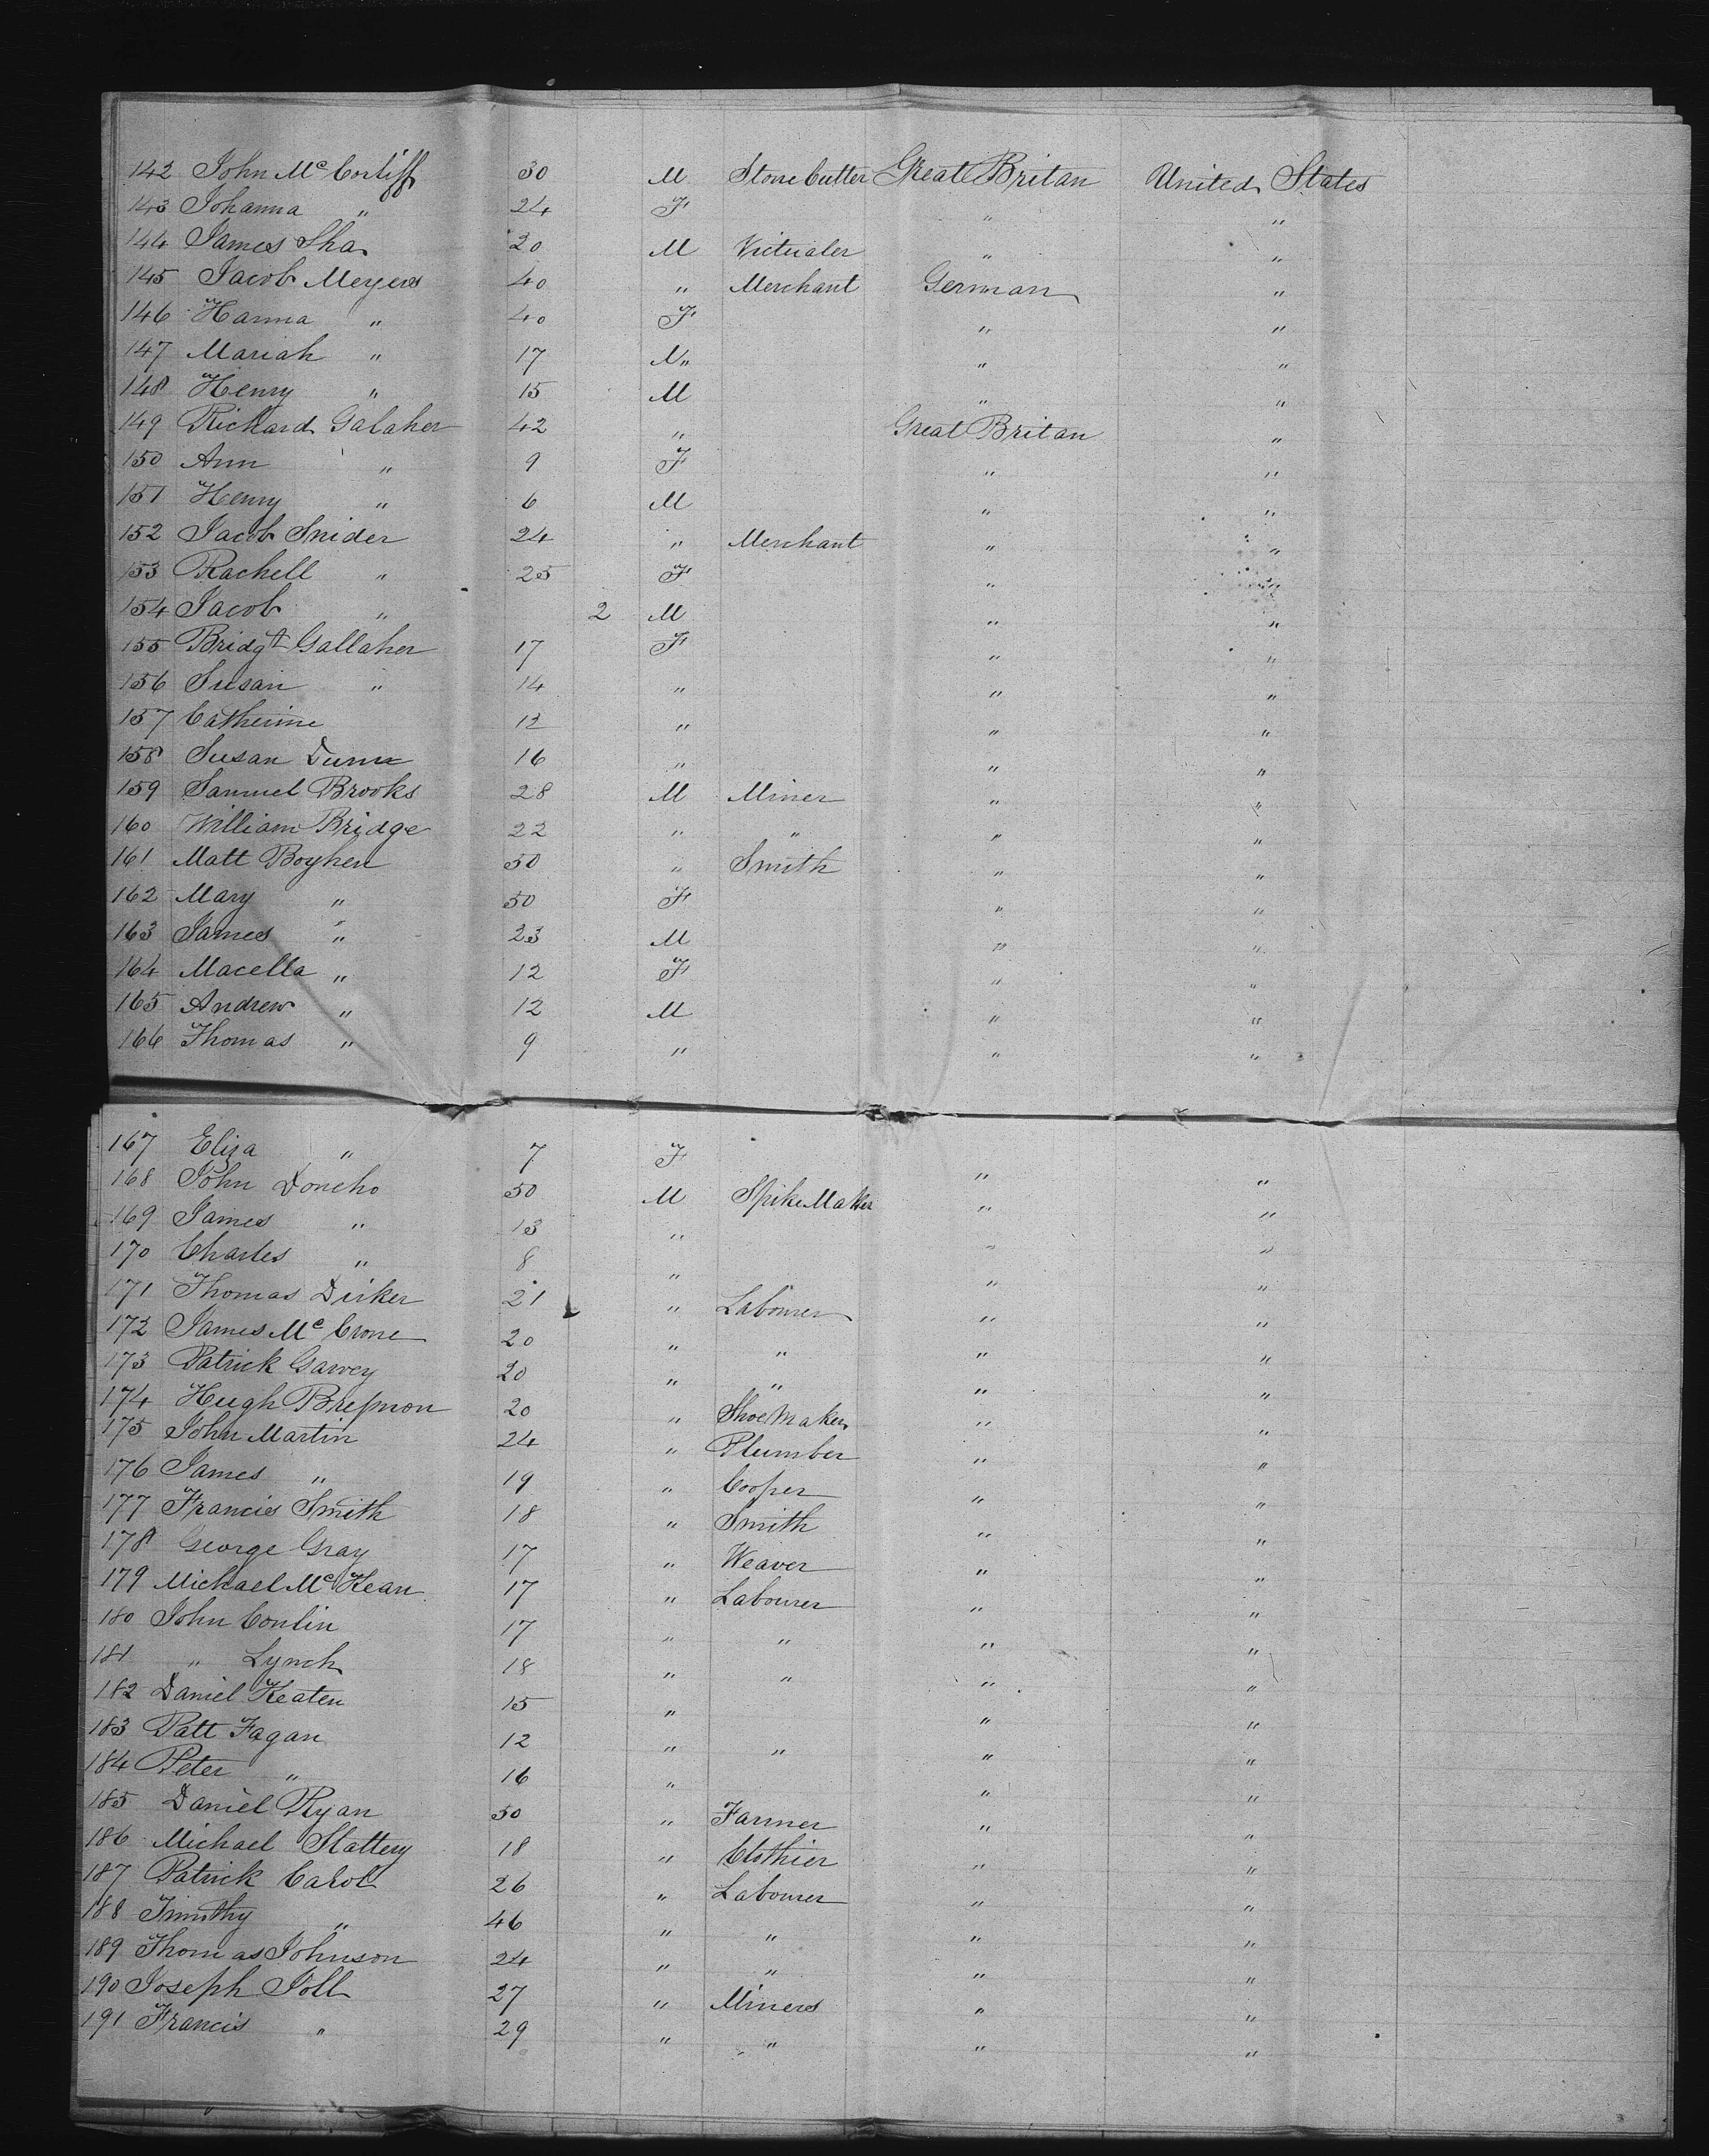 142 John Mc Corliff 30 M Stone Cutter Great Britan United States
143 Johanna " 24 F " "
144 James Sha 20 M Victualer " "
145 Jacob Meyers 40 " Merchant German "
146 Hanna " 40 F " "
147 Mariah " 17 " " "
148 Henry " 15 M " "
149 Richard Galaher 42 " Great Britan "
150 Ann " 9 F " "
151 Henry " 6 M " "
152 Jacob Snider 24 " Merchant " "
153 Rachell " 25 F " "
154 Jacob " 2 M " "
155 Bridgt Gallaher 17 F " "
156 Susan " 14 " " "
157 Catherine 12 " " "
158 Susan Dunn 16 " " "
159 Samuel Brooks 28 M Miner " "
160 William Bridge 22 " " " "
161 Matt Boyhen 50 " Smith " "
162 Mary " 50 F " "
163 James " 23 M " "
164 Macella " 12 F " "
165 Andrew " 12 M " "
166 Thomas " 9 " " "
167 Eliza " 7 F " "
168 John Doncho 50 M Spike Maker " "
169 James " 13 " " "
170 Charles " 8 " " "
171 Thomas Dirker 21 " Labourer " "
172 James Mc Crone 20 " " " "
173 Patrick Garvey 20 " " " "
174 Hugh 20 " Shoe Maker " "
175 John Martin 24 " Plumber " "
176 James " 19 " Cooper " "
177 Francis Smith 18 " Smith " "
178 George Gray 17 " Weaver " "
179 Michael Mc Kean 17 " Labourer " "
180 John Conlin 17 " " " "
181 " Lynch 18 " " " "
182 Daniel Keaten 15 " " "
183 Patt Fagan 12 " " " "
184 Peter " 16 " " "
185 Daniel Ryan 50 " Farmer " "
186 Michael Slattery 18 " Clothier " "
187 Patrick Carol 26 " Labourer " "
188 Timothy " 46 " " " "
189 Thomas Johnson 24 " " " "
190 Joseph Joll 27 " Miners " "
191 Francis " 29 " " " "